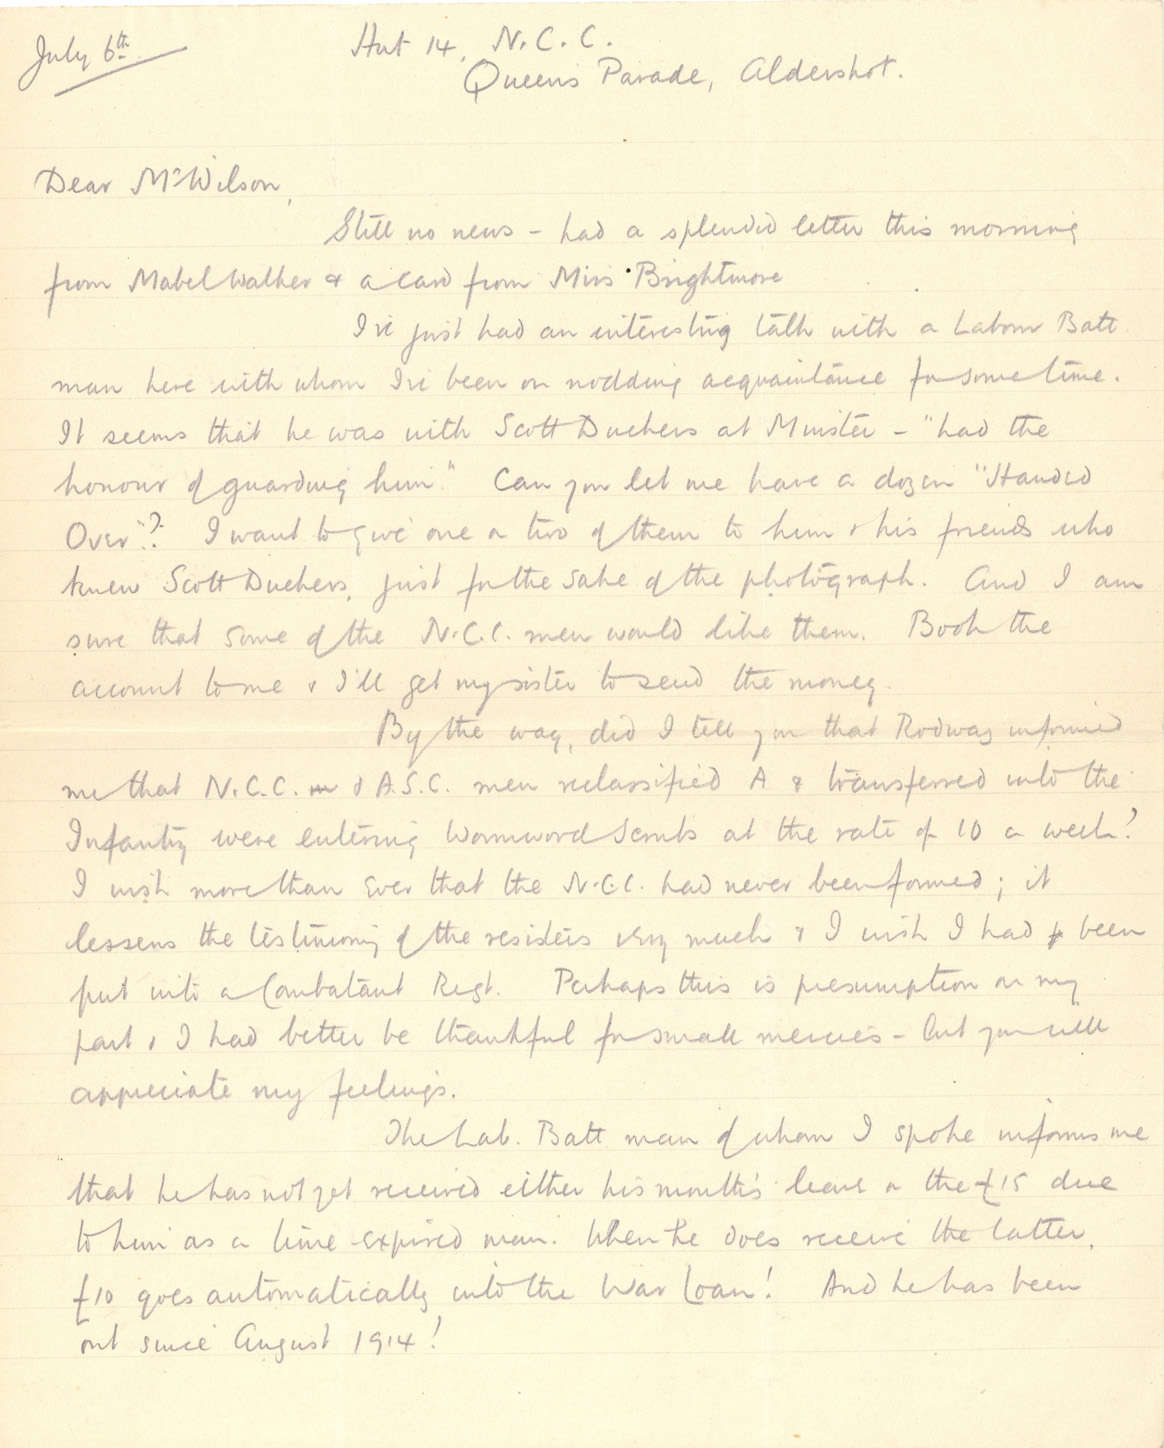 July 6th.
Hut 14, N.C.C.
Queens Parade, Aldershot.
Dear Mrs Wilson,
Still no news - had a splendid letter this morning
from Mabel Walker & a card from Miss Brightmore
I've just had an interesting talk with a Labour Batt
man here with whom I've been on nodding acquaintance for some time.
It seems that he was with Scott Duckers at Minster - "had the
honour of guarding him." Can you let me have a dozen "Handed
Over"? I want to give one or two of them to him & his friends who
knew Scott Duckers, just for the sake of the photograph. And I am
sure that some of the N.C.C. men would like them. Book the
account to me & I'll get my sister to send the money.
By the way, did I tell you that Rodway informed
me that N.C.C. m & A.S.C. men reclassified A & transferred into the
Infantry were entering Wormwood Scrubs at the rate of 10 a week?
I wish more than ever that the N.C.C. had never been formed; it
lessens the testimony of the resisters very much & I wish I had been
put into a Combatant Regt. Perhaps this is presumption on my
part & I had better be thankful for small mercies - but you will
appreciate my feelings.
The Lab. Batt man of whom I spoke informs me
that he has not yet received either his month's leave or the £15 due
to him as a time-expired man. When he does receive the latter,
£10 goes automatically into the War Loan! And he has been
out since August 1914!